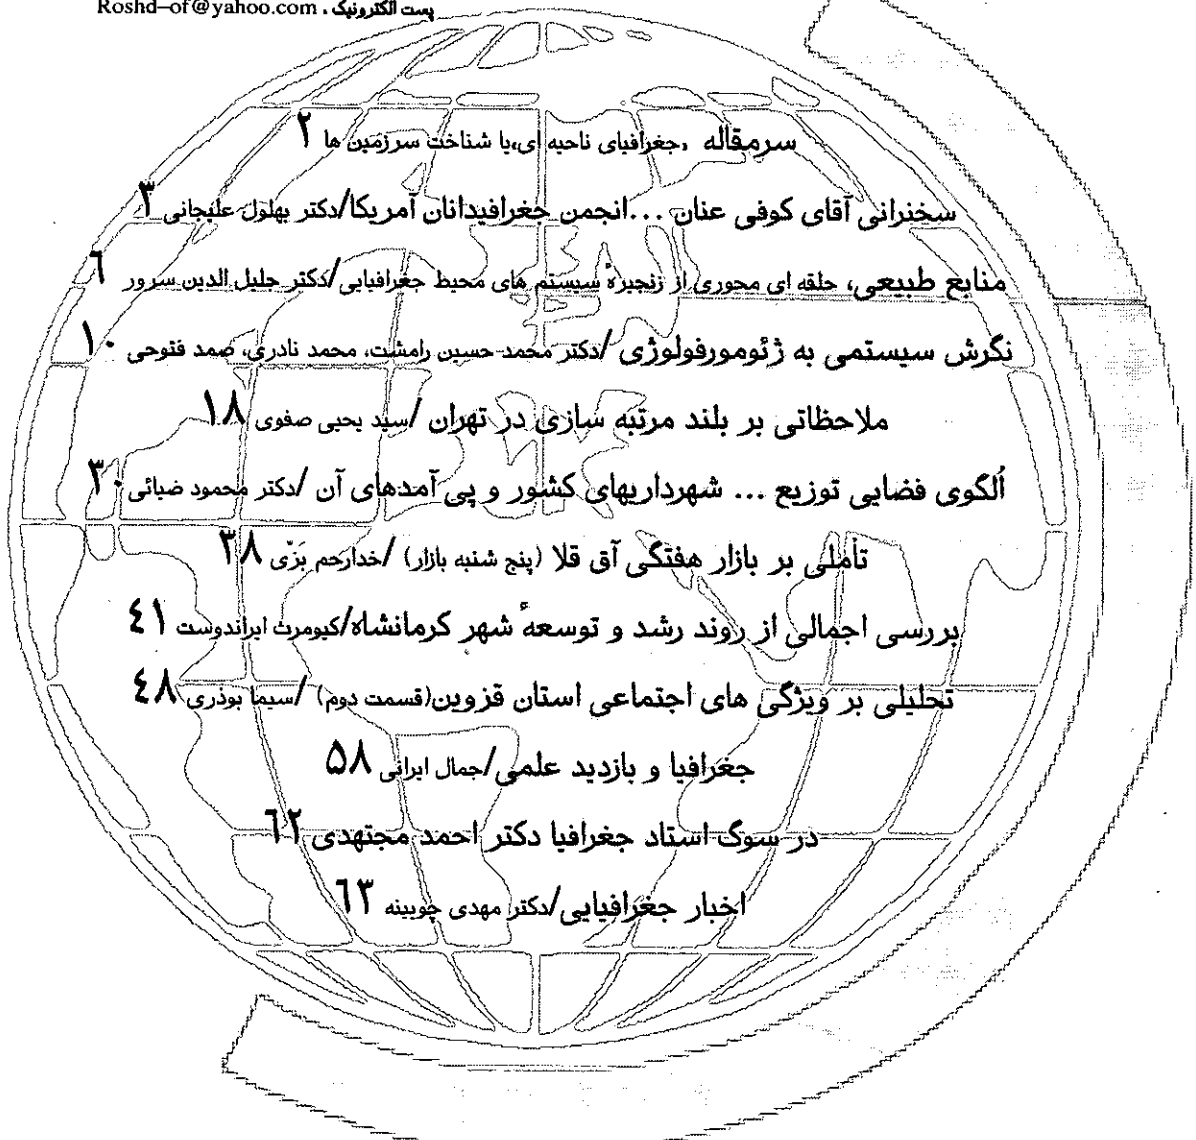 پست الکترونیک . Roshd-of@yahoo.com
سرمقاله ,جغرافیای ناحیه ای,یا شناخت سرزمین ها ۲
سخنرانی آقای کوفی عنان ...انجمن جغرافیدانان آمریکا/دکتر بهلول علیجانی ۳
منابع طبیعی، حلقه ای محوری از زنجیرهٔ سیستم های محیط جغرافیایی/دکتر جلیل الدین سرور ۶
نگرش سیستمی به ژئومورفولوژی /دکتر محمد حسین رامشت، محمد نادری، صمد فتوحی ۱۰
ملاحظاتی بر بلند مرتبه سازی در تهران /سید یحیی صفوی ۱۸
اُلگوی فضایی توزیع ... شهرداریهای کشور و پی آمدهای آن /دکتر محمود ضیائی ۳۰
تأملی بر بازار هفتگی آق قلا (پنج شنبه بازار) /خدارحم بَزّی ۳۸
بررسی اجمالی از روند رشد و توسعهٔ شهر کرمانشاه/کیومرث ایراندوست ۴۱
تحلیلی بر ویژگی های اجتماعی استان قزوین(قسمت دوم) /سیما بوذری ۴۸
جغرافیا و بازدید علمی/جمال ایرانی ۵۸
در سوگ استاد جغرافیا دکتر احمد مجتهدی ۶۲
اخبار جغرافیایی/دکتر مهدی چوبینه ۶۳